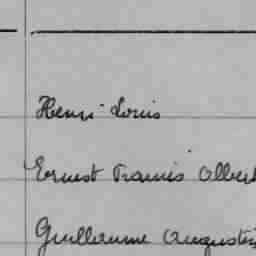 Henri Louis
Ernest Francis Albert
Guillaume Augustin